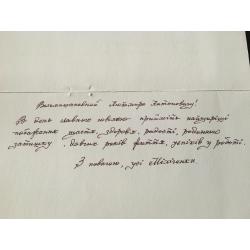 Вельмишановний Антоновичу!
В день славного ювілею прийміть найщиріші
побажання щастя, здоров'я, радості, родинного
затишку, довгих років життя, успіхів у роботі.
З повагою, усі